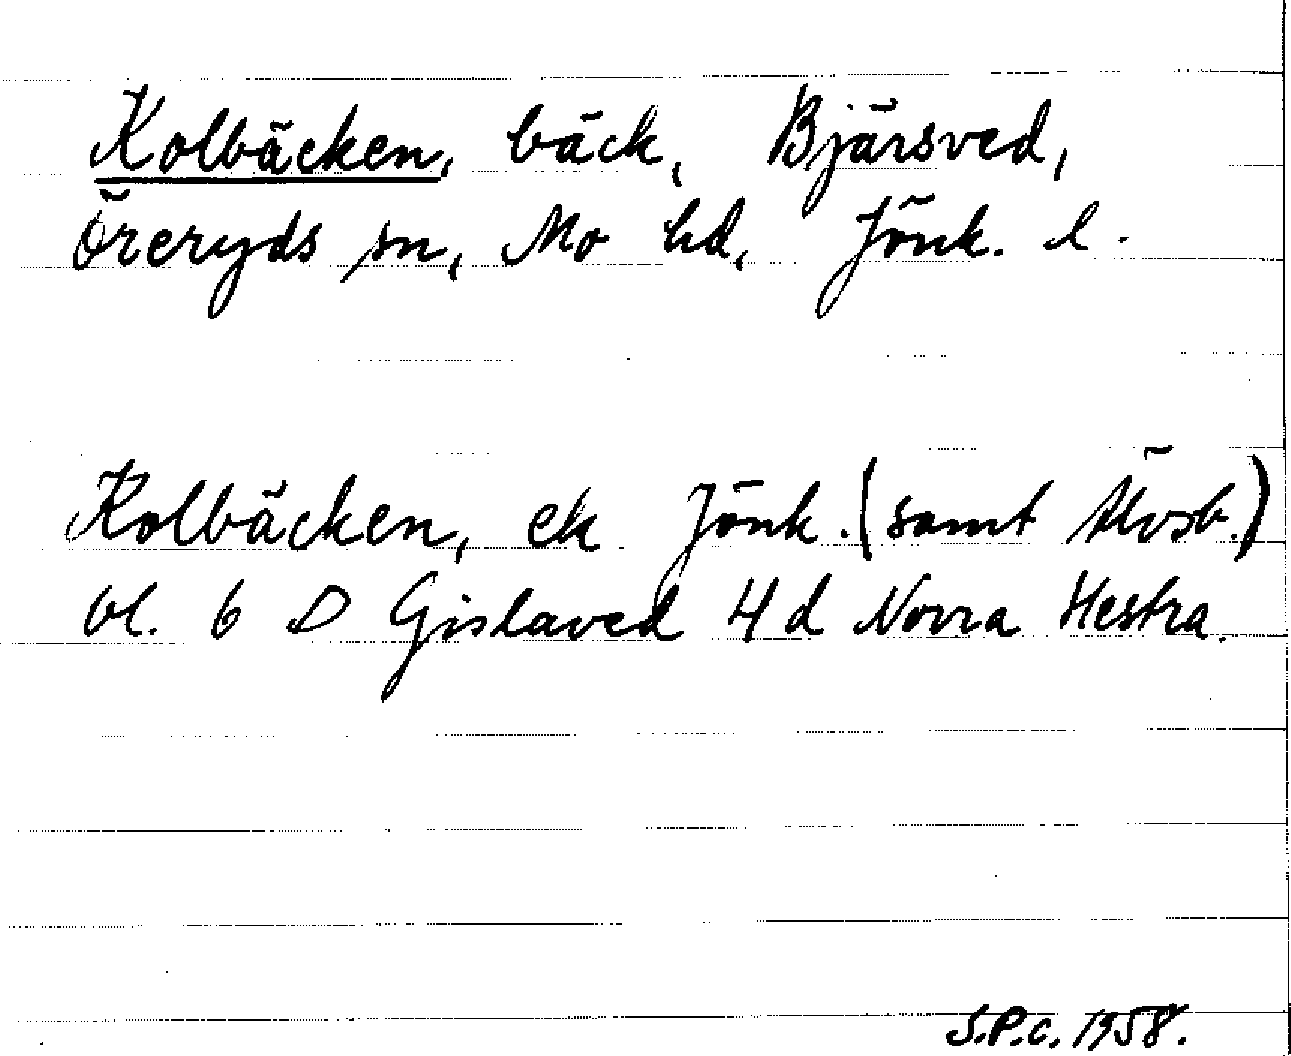 Kolbäcken, bäck, Bjärsved,
Öreryds sn, Mo hd, Jönk. l.
Kolbäcken, ek Jönk. (samt Älvsb.)
bl. 6 D Gislaved 4d Norra Hestra.
S.P.C. 1958.